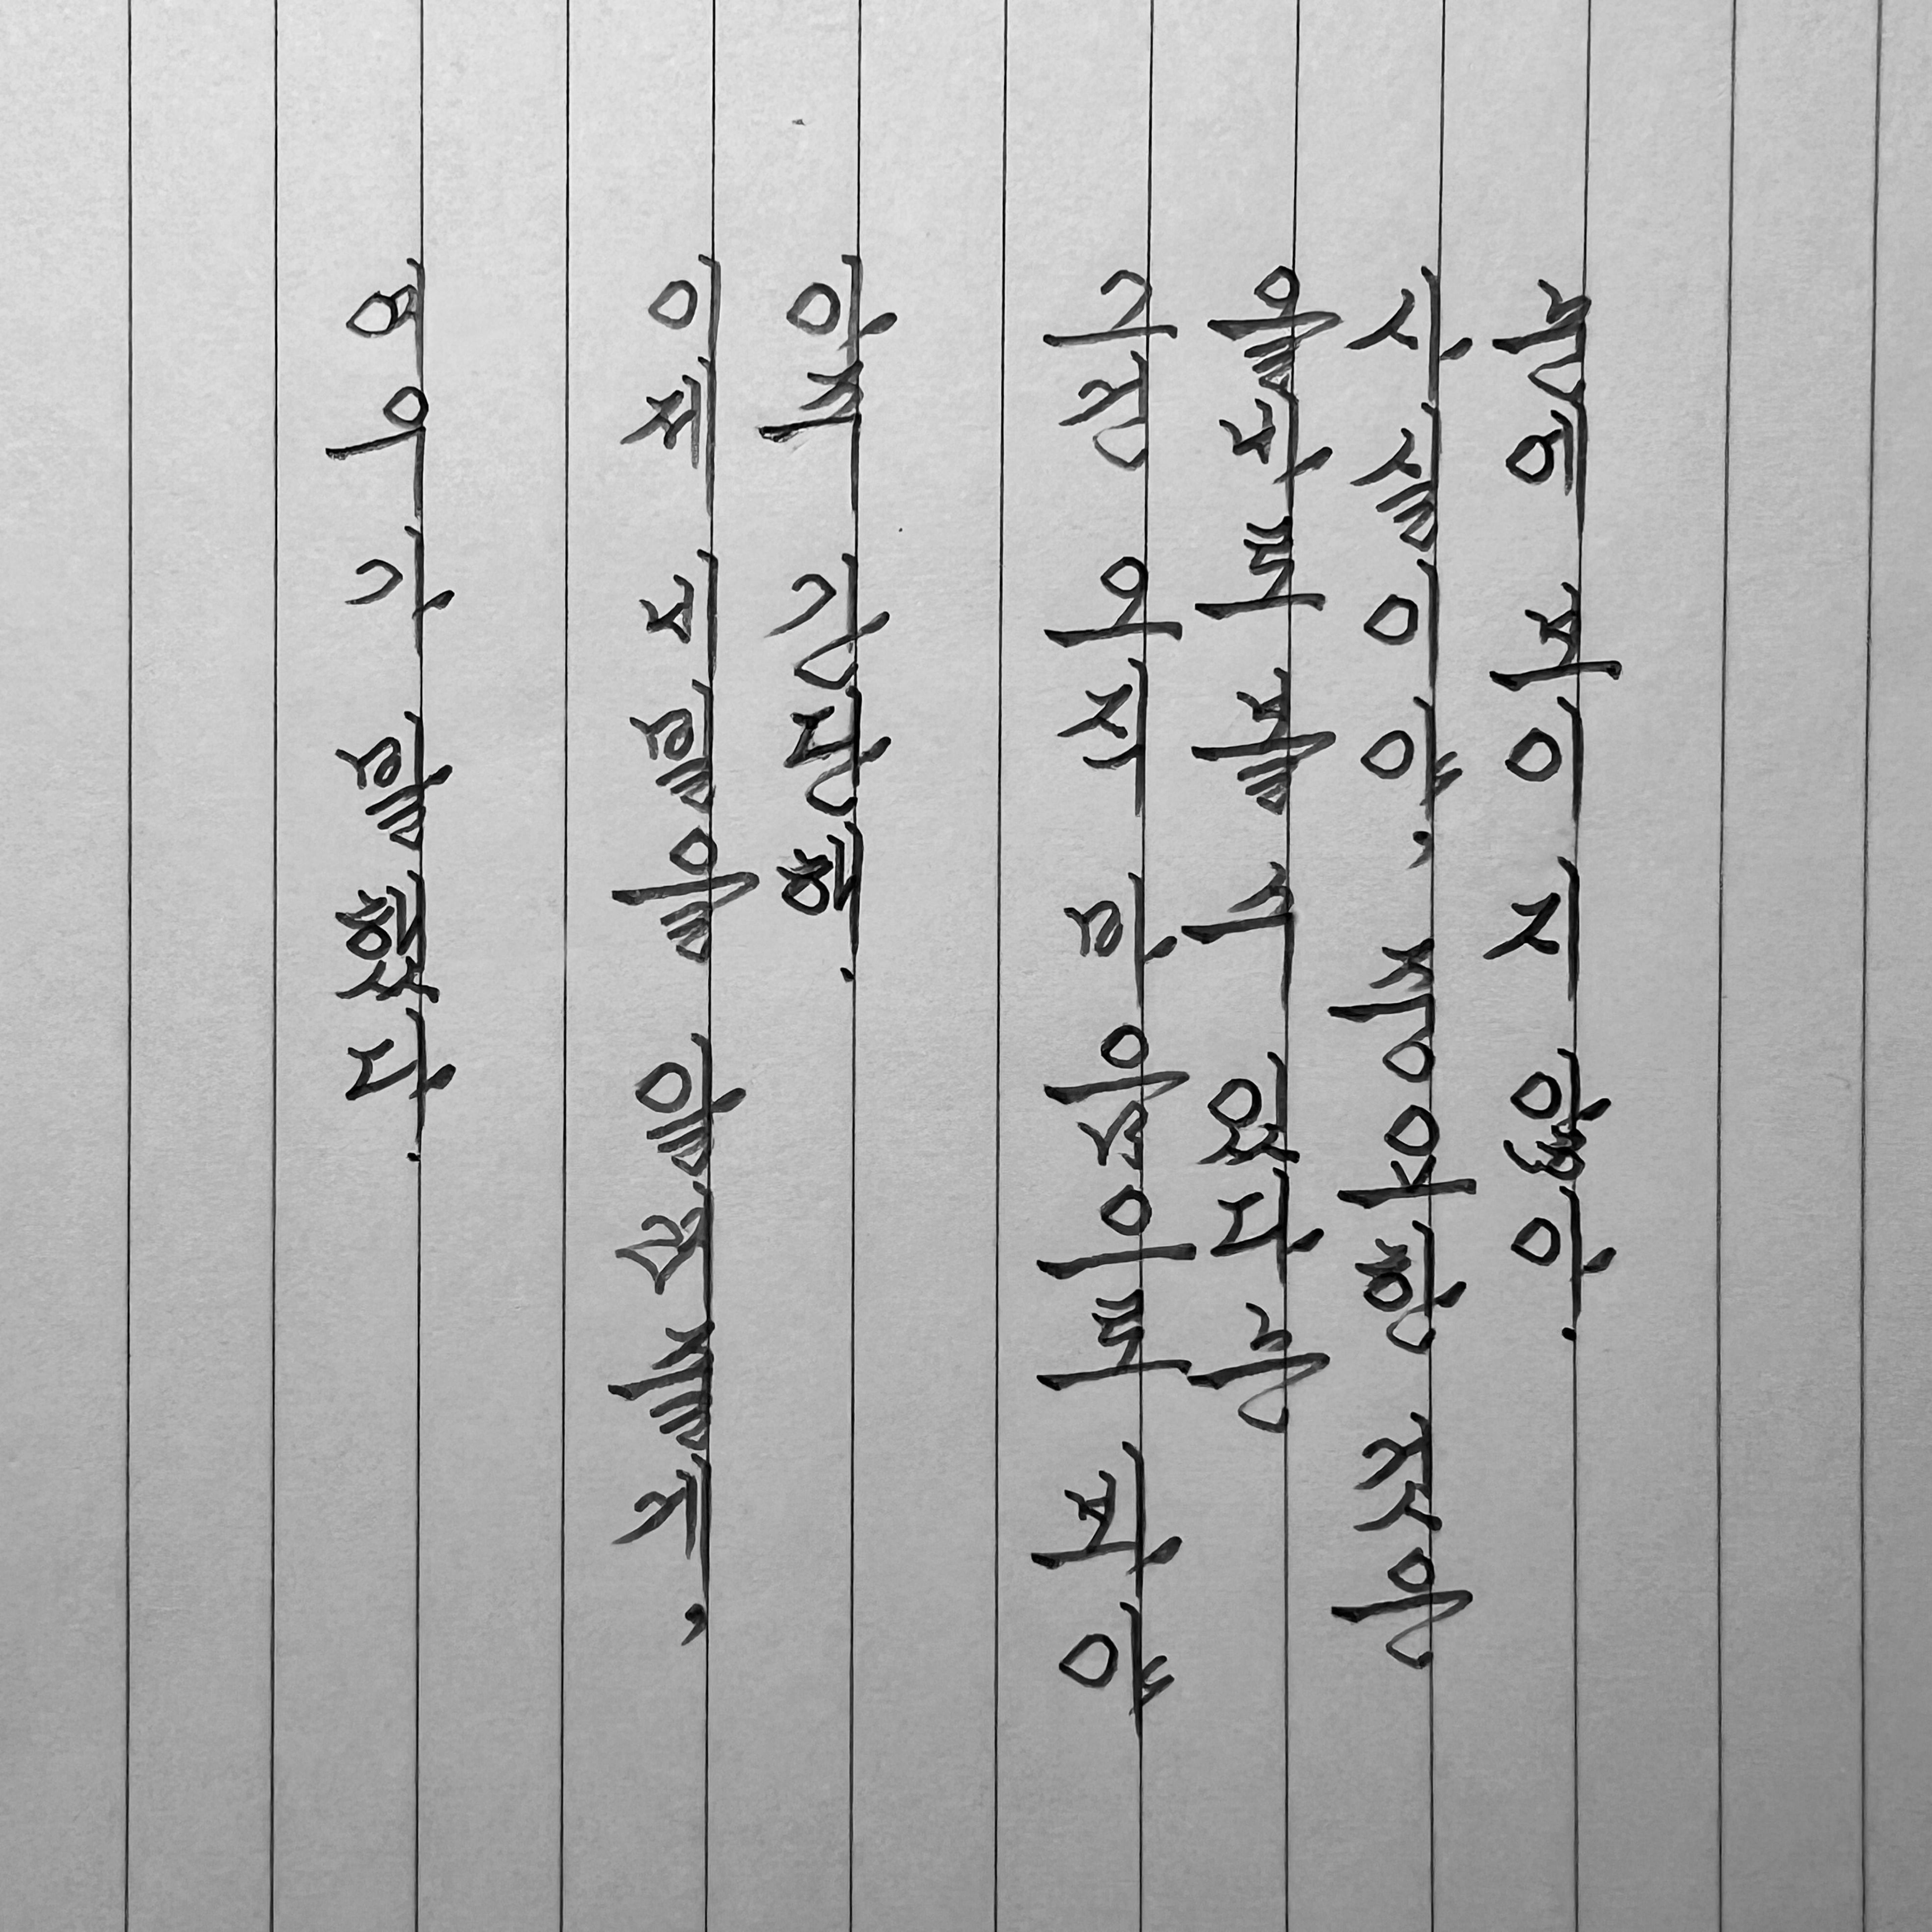 여우가 말했다.
이제 비밀을 알려줄게,
아주 간단해.
그건 오직 마음으로 봐야
올바로 볼 수 있다는
사실이야, 중요한 것은
눈에 보이지 않아.